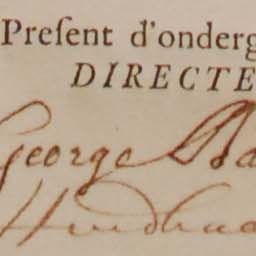 Preſent d'onderg
DIRECTE
George Ba